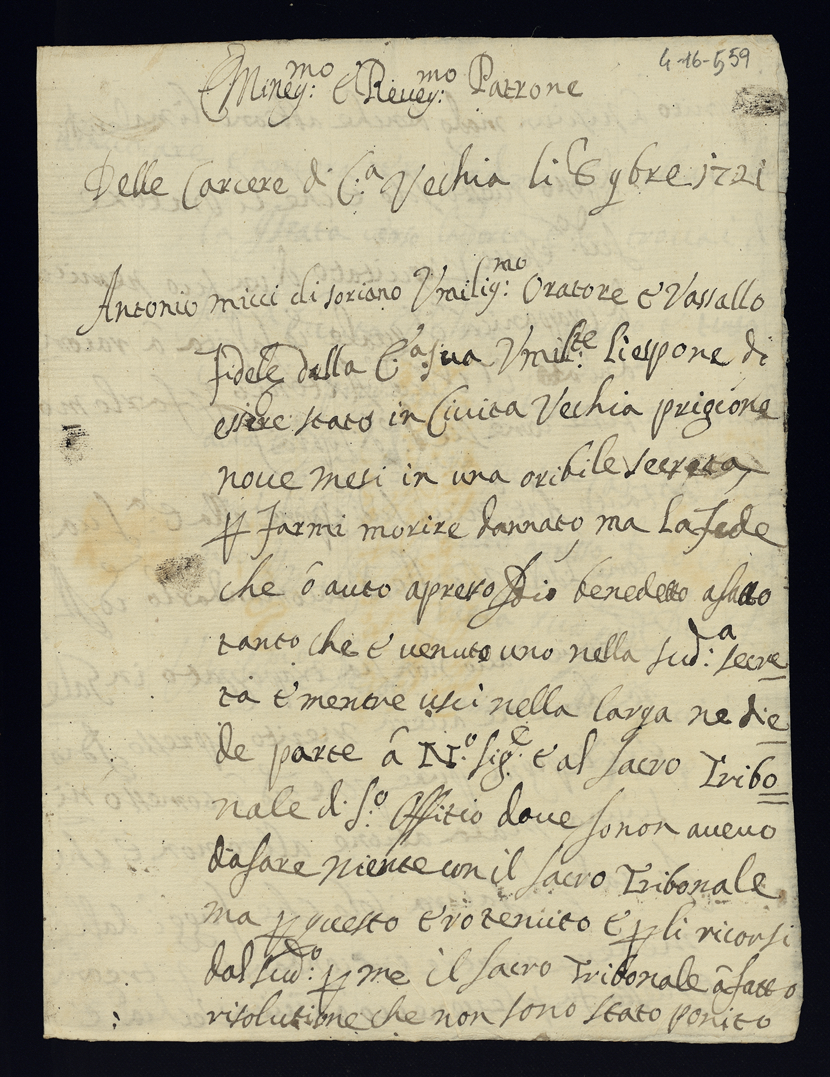 4-16-559
Eminen:mo E Reuen:mo Patrone
Delle Carcere di C:a Vechia li 6 9bre 1721
Antonio micci di soriano Vmilis:mo Oratore e Vassallo
fidele dalla E:a sua Vmilte: li espone di
essere stato in Civita Vechia prigione
noue mesi in una oribile secreta,
p farmi morire dannato, ma la fede
che ò auto apreso Dio benedetto a fatto
tanto che è venuto uno nella sud:a secre
ta e mentre usci nella larga ne die
de parte â N:o Sig:e e al sacro Tribo
nale di S:o Offitio doue io non aueuo
dafare niente con il sacro Tribonale
ma p questo ero tenuto e p li ricorsi
dal sud:o p me il sacro Tribonale â fatto
risolutione che non sono stato ponito